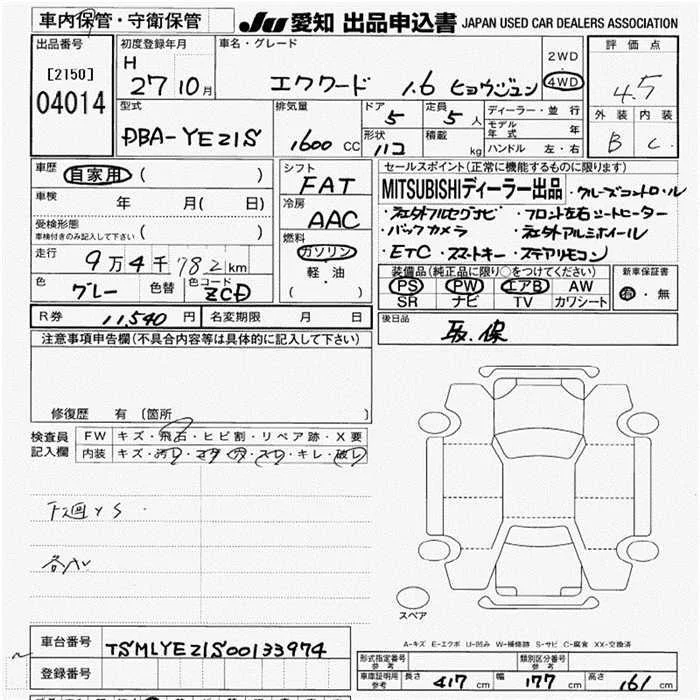 車内保管・守衛保管
JU 愛知 出品申込書 JAPAN USED CAR DEALERS ASSOCIATION
出品番号
[2150]
04014
初度登録年月
H
27 10月
車名・グレード
エクワード 1.6 ヒョウジュン
2WD
・
4WD
評価点
4.5
外装 内装
B C
型式
DBA-YE21S
排気量
1600 CC
ドア
5
定員
5人
形状
積載
kg
ディーラー・並行
モデル年式 年
ハンドル 左・右
車歴
自家用 ( )
車検 年 月( 日)
受検形態
車検付きのみ記入して下さい ( )
走行
9万4千782km
色
グレー
色替
色コード
ZCD
シフト
FAT
冷房
AAC
燃料
ガソリン
軽・油
( )
セールスポイント(正常に機能するものに限ります)
MITSUBISHIディーラー出品 ・クルーズコントロ・ル
・社外フルセグナビ ・フロント左右シートヒーター
・バックカメラ ・社外アルミホイール
・ETC ・スマートキー ・ステアリモコン
装備品(純正品に限り○をつけてください)
PS PW エアB AW
SR ナビ TV カワシート
新車保証書
有・無
R券 11,540 円
名変期限 月 日
後日品
取.保
注意事項申告欄(不具合内容等は具体的に記入して下さい)
修復歴 有 (箇所 )
検査員
記入欄
FW キズ・飛石・ヒビ割・リペア跡・X要
内装 キズ・汚レ・コゲ・穴・スレ・キレ・破レ
下廻 ﾏS.
スペア
A-キズ E-エクボ U-凹み W-補修跡 S-サビ C-腐食 XX-交換済
車台番号 TSMLYE21S00133974
登録番号
形式指定番号
参考
類別区分番号
参考
車庫証明用
参考
長さ 417 cm 幅 177 cm 高さ 161 cm